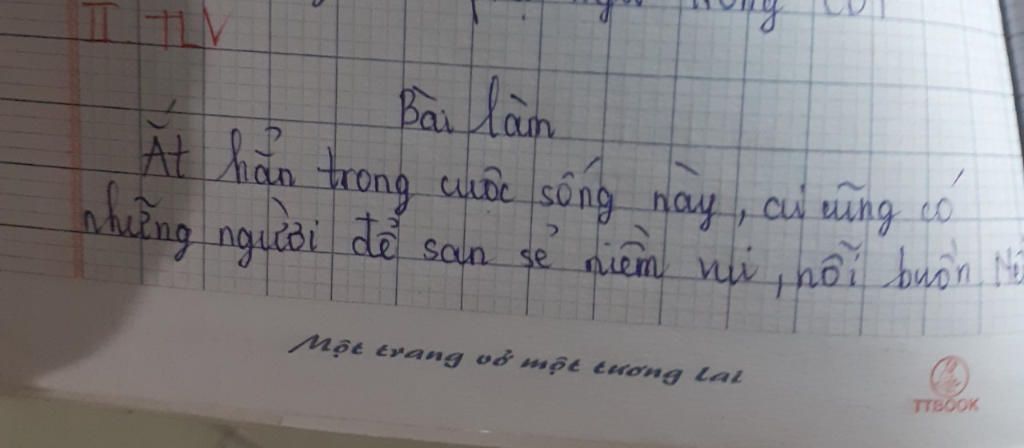 II TLV
Bài làm
Ắt hẳn trong cuộc sống này, ai cũng có
những người để san sẻ niềm vui, nỗi buồn
Một trang vở một tương lai
TTBOOK